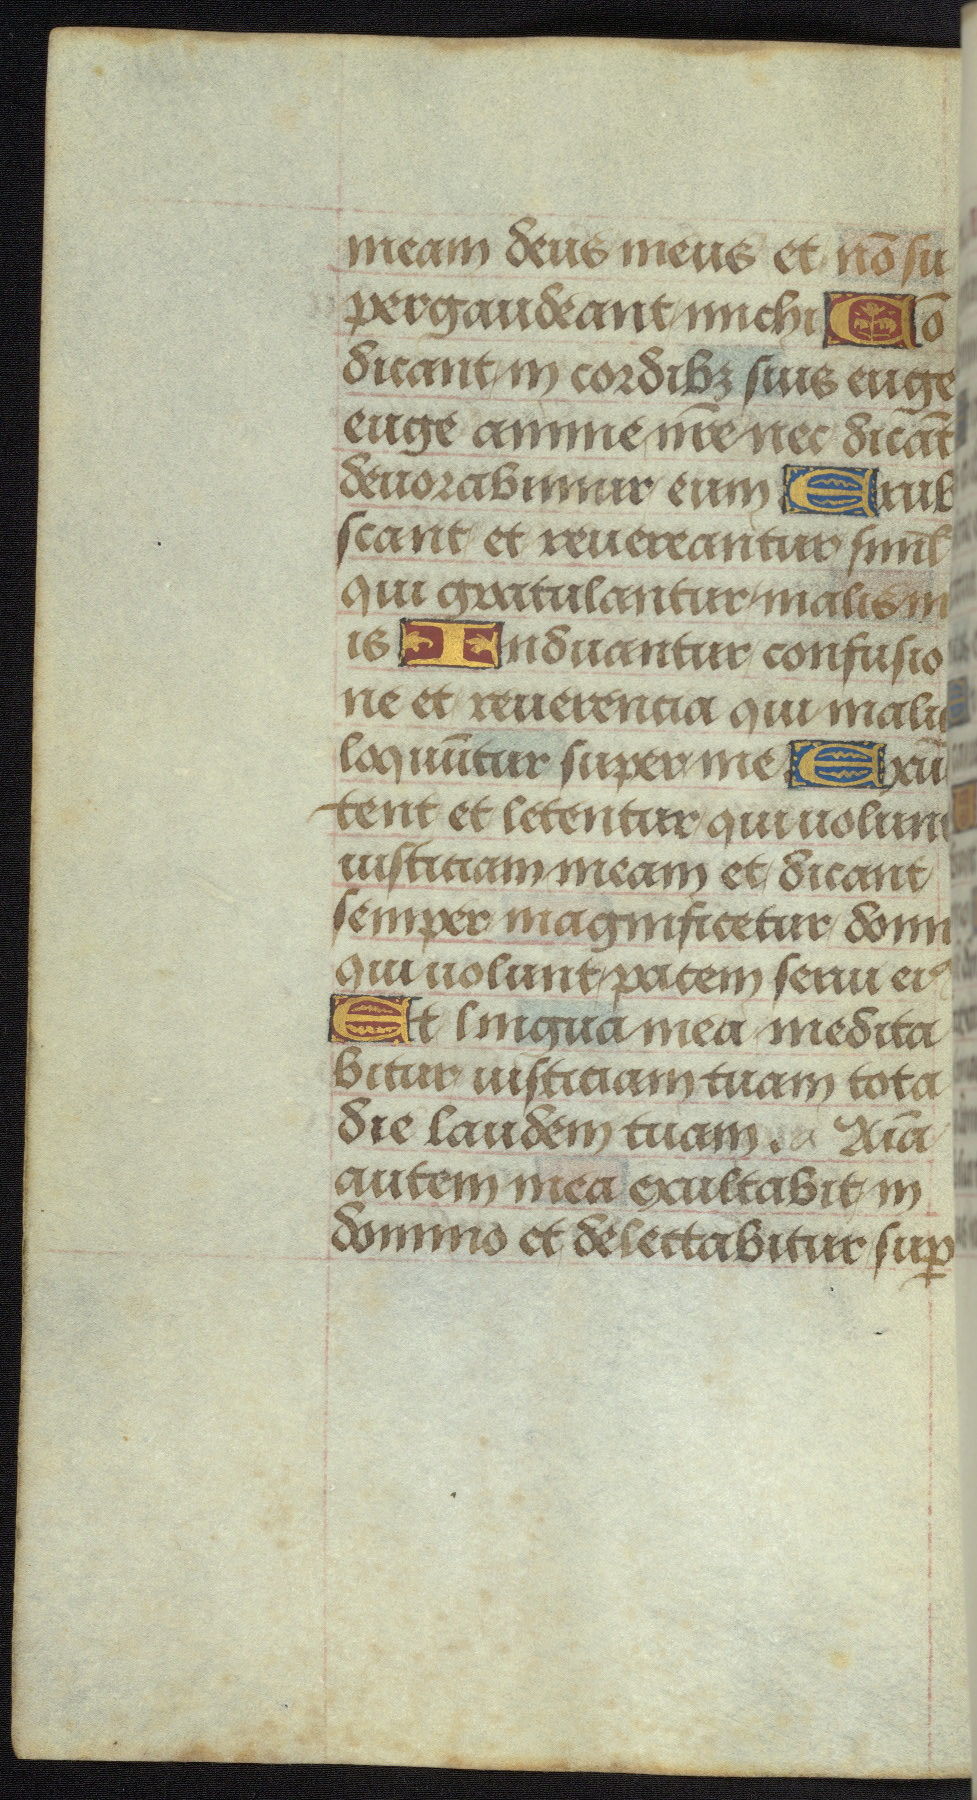 meam deus meus et nō su
pergaudeant michi Nō
dicant in cordibꝫ suis euge
euge anime nr̄e nec dicāt
deuorabimur eum Erub
scant et reuereantur simul
qui gratulantur malis m
is Induantur confusio
ne et reuerencia qui
loquūtur super me Exu
tent et letentur qui uolunt
iusticiam meam et dicant
semper magnificetur domin
qui uolunt pacem serui ei⁹
Et lingua mea medita
bitur iusticiam tuam tota
die laudem tuam. Aīa
autem mea exultabit in
domino et delectabitur suꝑ